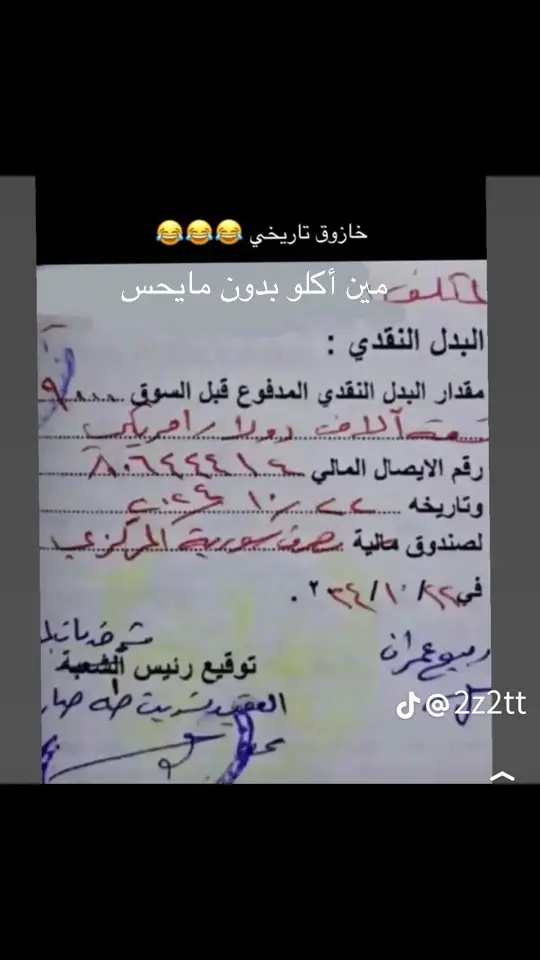 خازوق تاريخي 😂😂😂
مين أكلو بدون مايحس
المكلف
البدل النقدي :
مقدار البدل النقدي المدفوع قبل السوق ....٩٠٠٠
تسعة آلاف دولار امريكي
رقم الايصال المالي ٨٠٦٤٤٤١٤
وتاريخه ٢٢/١٠/٢٠٢٤
لصندوق مالية مصرف سورية المركزي
في ٢٢/١٠/٢٠٢٤ .
ربيع عمران
توقيع رئيس الشعبة
العقيد
@2z2tt